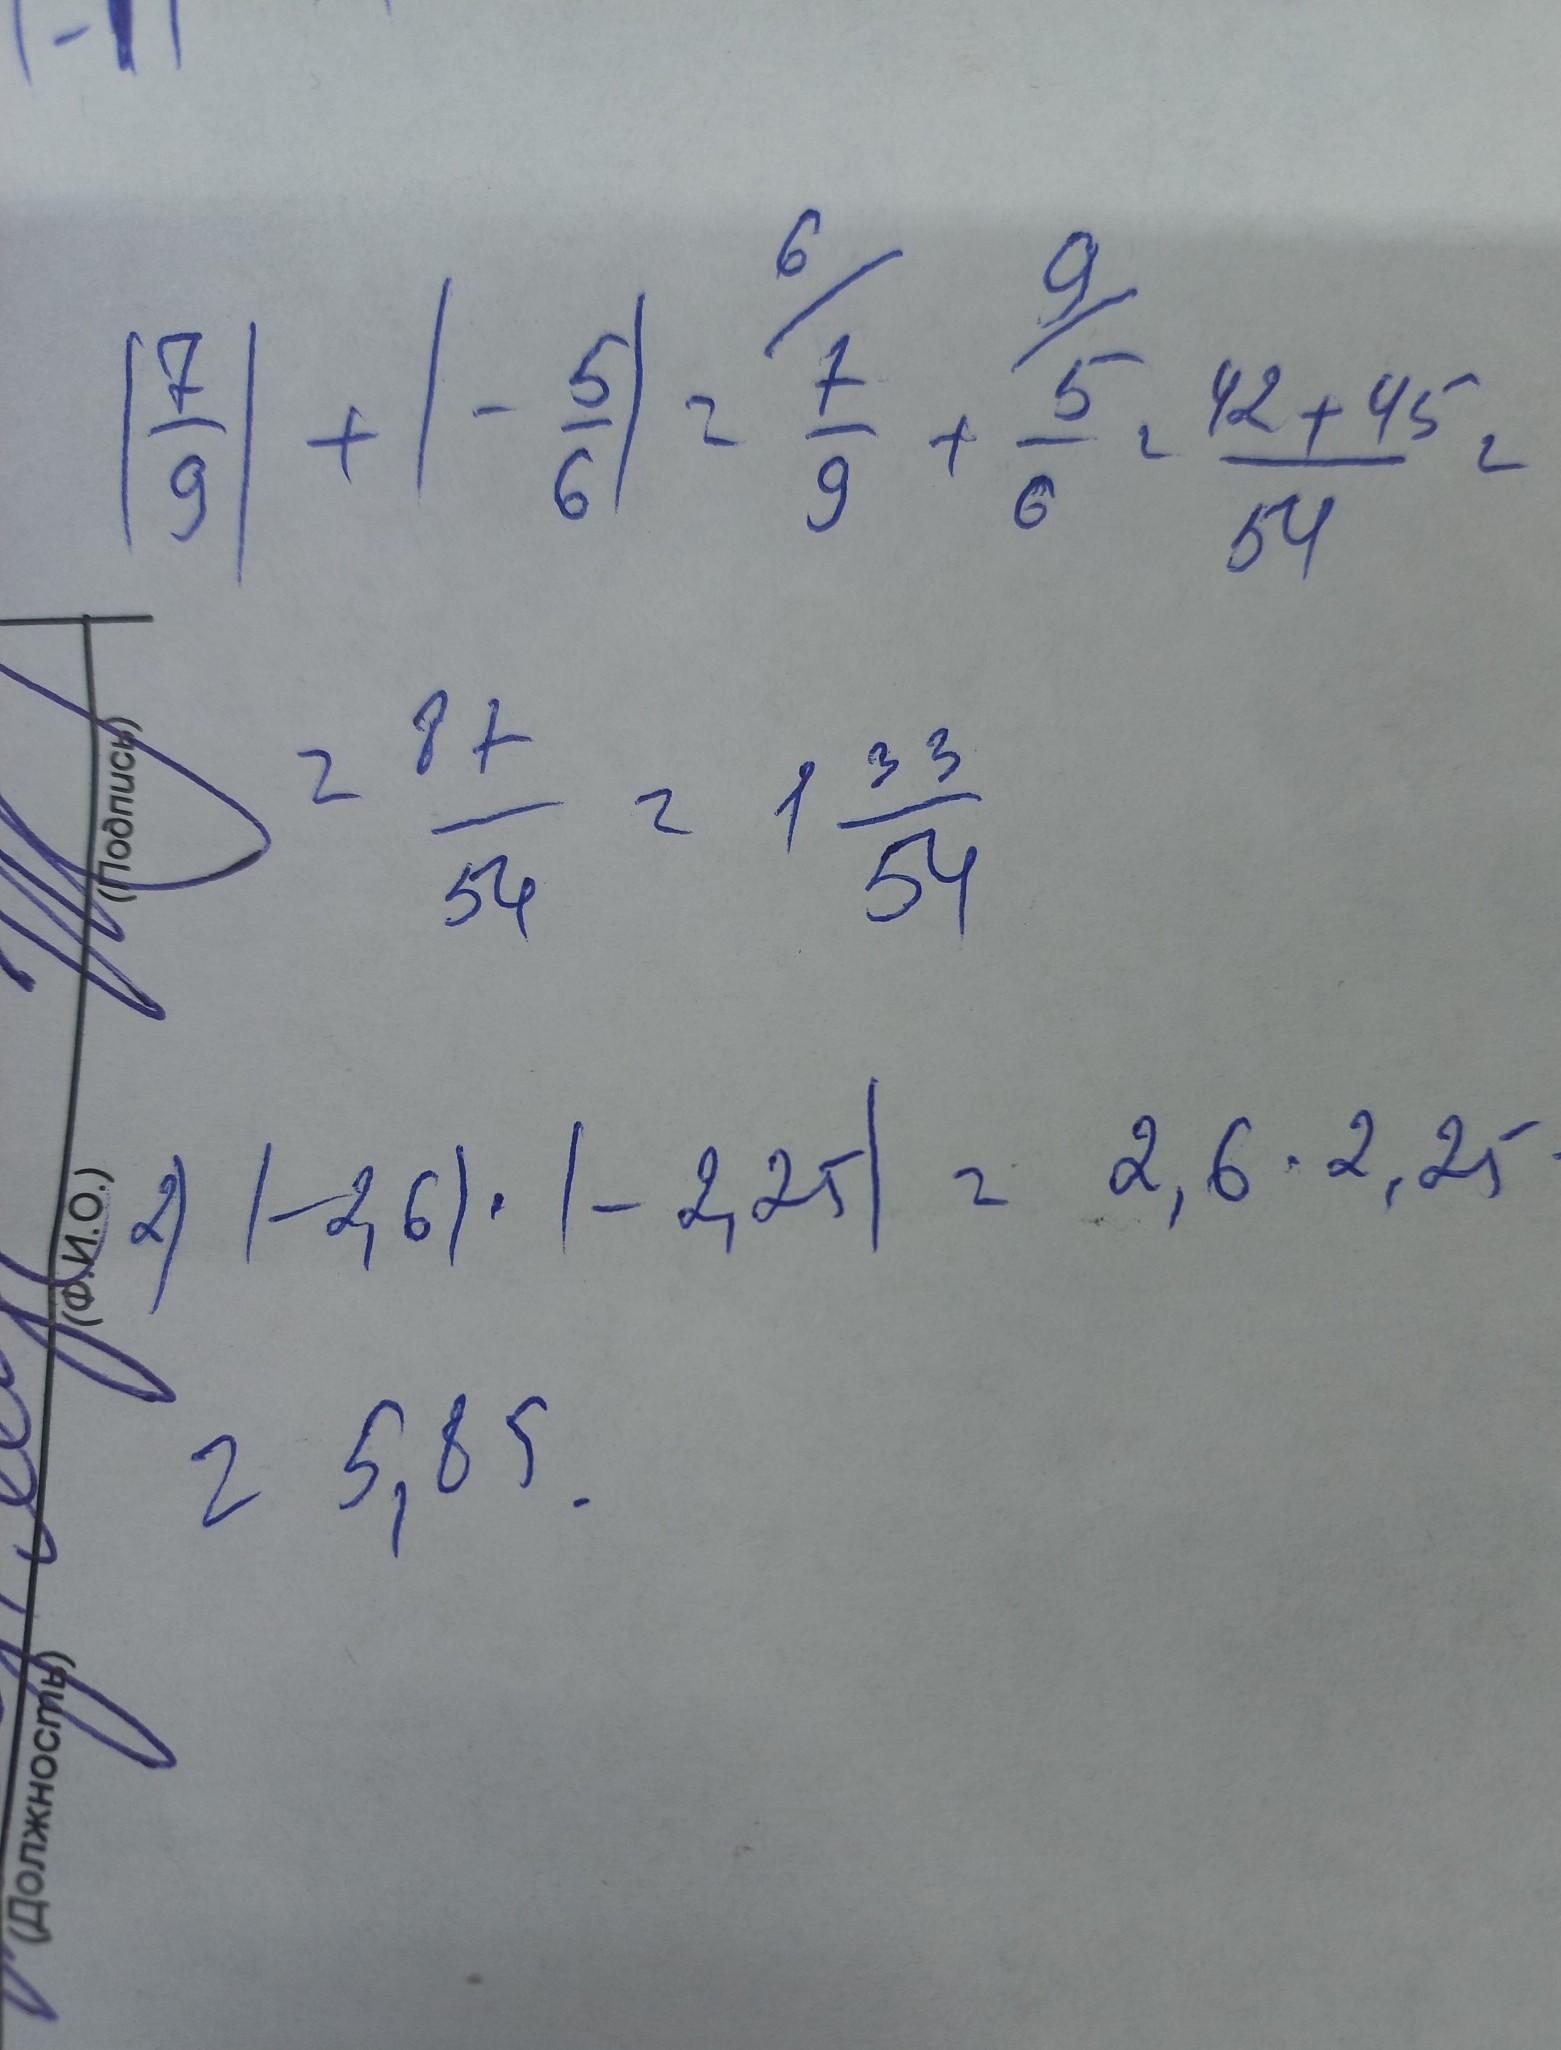 |-1|
6/ 9/
|7/9| + |- 5/6| = 7/9 + 5/6 = 42+45/54 =
= 87/54 = 1 33/54
2) |-2,6| · |- 2,25| = 2,6 · 2,25
= 5,85.
(Подпись)
(Ф.И.О.)
(Должность)